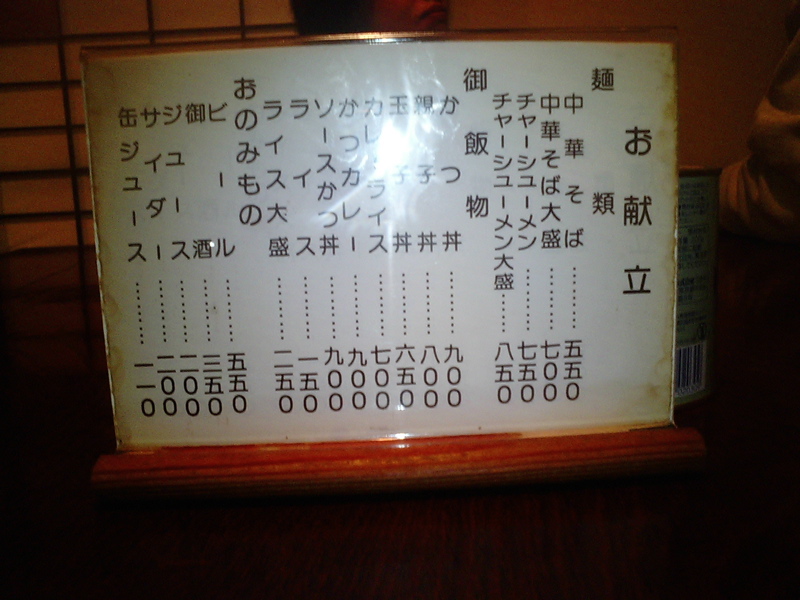 お献立
麺類
中華そば……五五0
中華そば大盛……七00
チャーシューメン……七五0
チャーシューメン大盛……八五0
御飯物
かつ丼……九00
親子丼……八00
玉子丼……六五0
カレーライス……七00
かつカレー……九00
ソースかつ丼……九00
ライス……一五0
ライス大盛……二五0
おのみもの
ビール……五五0
御酒……三五0
ジュース……二00
サイダー……二00
缶ジュース……一一0